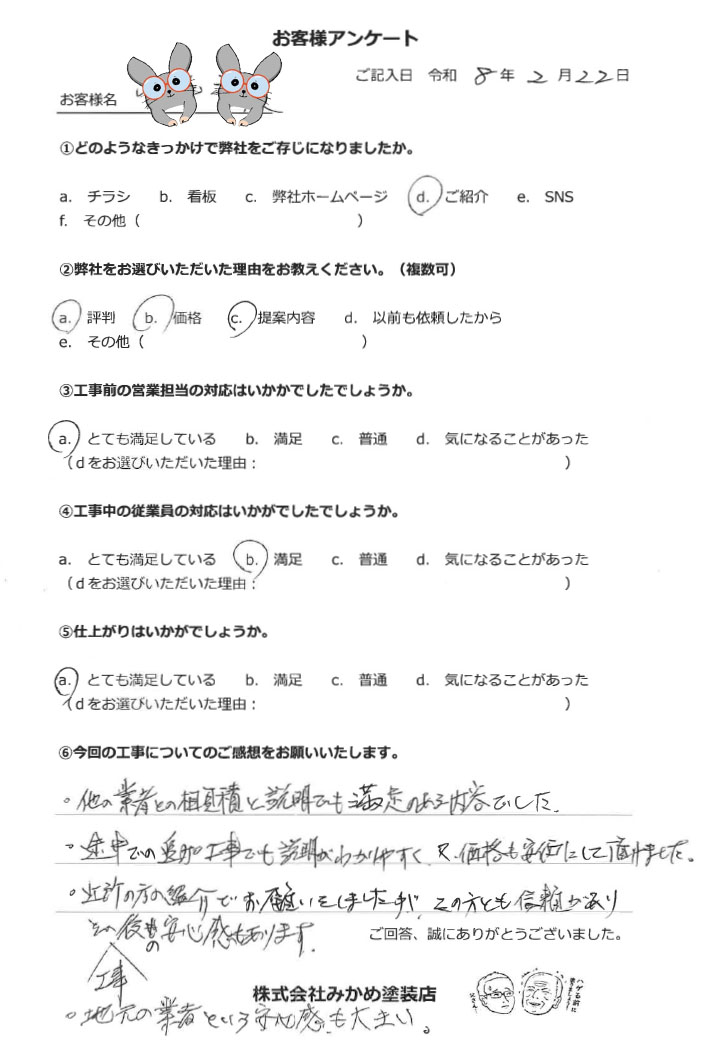 お客様アンケート
ご記入日 令和 8年 2月22日
お客様名
①どのようなきっかけで弊社をご存じになりましたか。
a. チラシ b. 看板 c. 弊社ホームページ d. ご紹介 e. SNS
f. その他（ ）
②弊社をお選びいただいた理由をお教えください。（複数可）
a. 評判 b. 価格 c. 提案内容 d. 以前も依頼したから
e. その他（ ）
③工事前の営業担当の対応はいかかでしたでしょうか。
a. とても満足している b. 満足 c. 普通 d. 気になることがあった
（dをお選びいただいた理由： ）
④工事中の従業員の対応はいかがでしたでしょうか。
a. とても満足している b. 満足 c. 普通 d. 気になることがあった
（dをお選びいただいた理由： ）
⑤仕上がりはいかがでしょうか。
a. とても満足している b. 満足 c. 普通 d. 気になることがあった
（dをお選びいただいた理由： ）
⑥今回の工事についてのご感想をお願いいたします。
。他の業者との相見積と説明でも満足のある内容でした。
。途中での追加工事でも説明がわかりやすく、又、価格も安価にして頂けました。
。近所の方の紹介でお願いをしましたが、その方とも信頼があり
その後の工事も安心感もあります。
ご回答、誠にありがとうございました。
株式会社みかめ塗装店
。地元の業者という安心感も大きい。